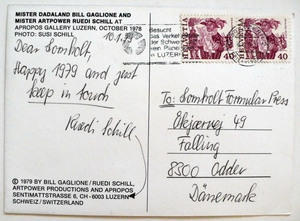 MISTER DADALAND BILL GAGLIONE AND
MISTER ARTPOWER RUEDI SCHILL AT
APROPOS GALLERY LUZERN, OCTOBER 1978
PHOTO: SUSI SCHILL
10.1.79
Dear Lomholt,
Happy 1979 and just
keep in touch
Ruedi Schill
© 1979 BY BILL GAGLIONE / RUEDI SCHILL,
ARTPOWER PRODUCTIONS AND APROPOS
SENTIMATTSTRASSE 6, CH-6003 LUZERN
SCHWEIZ / SWITZERLAND
Besucht
das Verkehrs
der Schweiz
in LUZERN
HELVETIA
40
HELVETIA
40
To: Lomholt Formular Press
49
Falling
8300 Odder
Dänemark